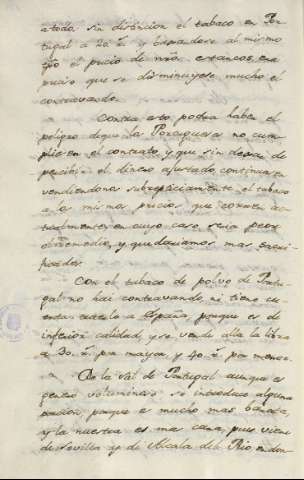 a todo sin distincion el tabaco en Por-
tugal a 20 r.^s y bajandose al mismo
tpo el precio de nros estancos, era
preciso que se disminuyese mucho el
contravando.
Contra esto podria haber el
peligro de que la Portuguesa no cum-
pliese en el contrato, y que sin dexar de
percibir el dinero ajustado continuase
vendiendonos subrepticiamente el tabaco
a los mismos precios que corren ac-
tualmente: en cuyo caso seria peor
el remedio, y quedariamos mas sacri-
ficados.
Con el tabaco de polvo de Portu-
gal no hai contravando, ni tiene cu-
enta traerlo a España, porque es de
inferior calidad, y se vende alla la libra
a 30 r.^s por mayor y 40 r.^s por menor.
De la sal de Portugal aunque es
genero voluminoso se introduce alguna
porcion, porque es mucho mas barata,
y la nuestra es mas cara, pues viene
de Sevilla y de Alcala del Rio en don-